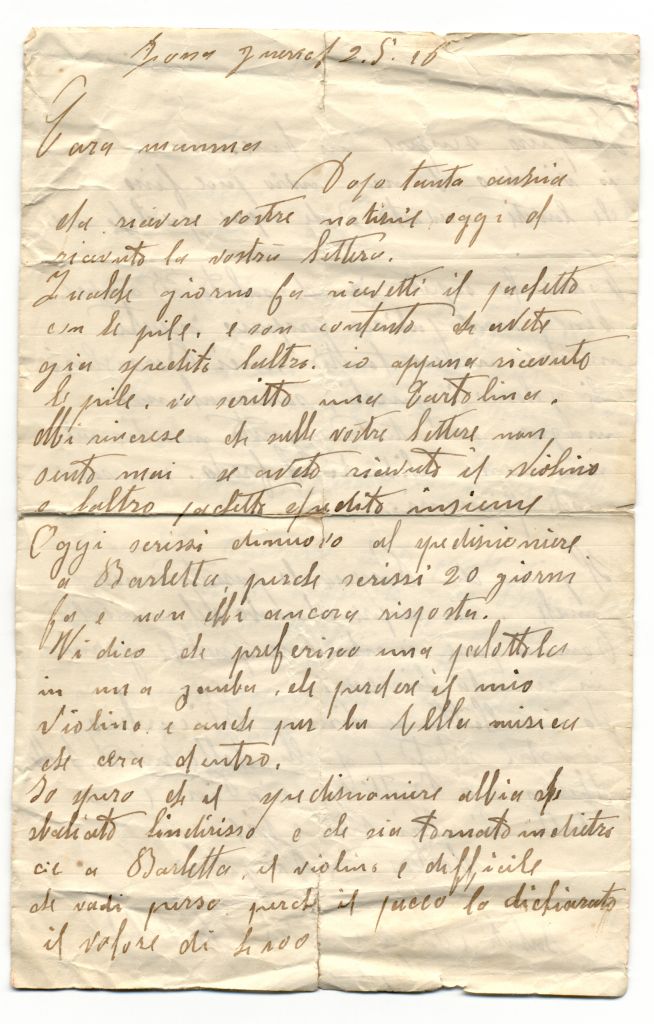 Zona guerra 2.5.16
Cara mamma
Dopo tanta ansia
da ricevere vostre notizie oggi o
ricevuto la vostra lettera.
Qualche giorno fa ricevetti il pachetto
con le pile. e son contento che avete
gia spedito laltro. io appena ricevuto
le pile. vo scritto una Cartolina.
Mi rincrese che sulle vostre lettere non
sento mai se avete ricevuto il violino
e laltro pachetto spedito insieme
Oggi scrissi dinuovo al spedizioniere
a Barletta, perche scrissi 20 giorni
fa e non ebbi ancora risposta.
Vi dico che preferisco una palottola
in una gamba, che perdere il mio
violino e anche per la bella musica
che cera dentro.
Io spero che il spedizioniere abbia
sbaliato lindirisso e che sia tornato indietro
a Barletta, il violino e difficile
che vadi perso perche il pacco lo dichiarato
il valore di L 100